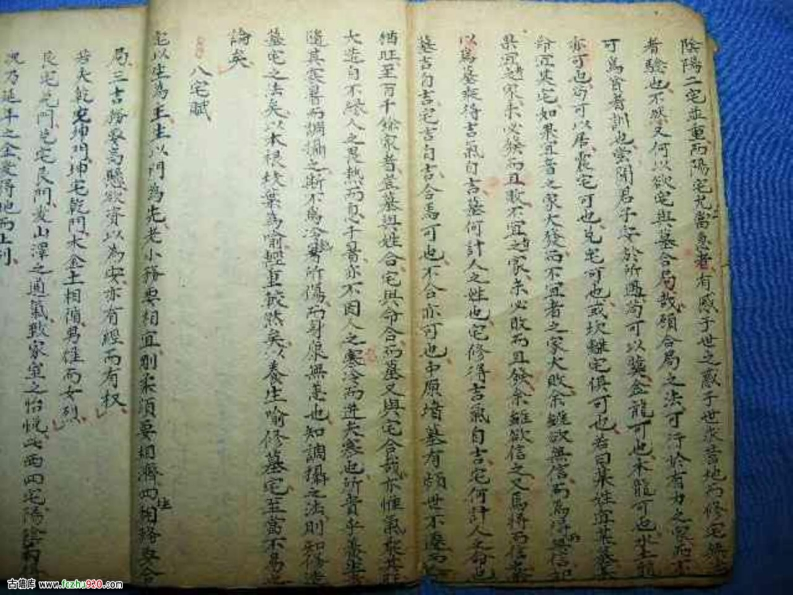 陰陽二宅並重而陽宅尤當急者有感于世之惑于世求葬地而修宅無
者驗也不然又何以欲宅與墓合局哉顧合局之法可行於有力之家而
可為貧者訓也嘗聞君子安於所遇苟可以葬金龍可也木龍可也水土
亦可也苟可以居震宅可也兌宅可也或坎離宅俱可也若曰某姓宜某墓
給宜某宅如果宜者之家大發而不宜者之家大敗余雖欲無信而烏得
果宜之家未必發而且敗不宜之家未必敗而且發余雖欲信之又烏得而信
以為墓凝得吉氣自吉墓何計人之姓也宅修得吉氣自吉宅何計人之命也
墓吉自吉宅吉自吉合焉可也不合亦可也中原墳墓有
猶旺至百千餘家者豈墓與姓合宅與命合而墓又與宅合哉亦惟氣
大造自不緣人之畏熱而息于暑亦不因人之寒冷而進夫寒也所貴乎養生者
隨其寒暑而調攝之斯不為寒暑所傷而身康無恙也知調攝之法則知修造
墓宅之法矣以本根枝葉為喻輕重較然矣以養生喻修墓宅至當不易
論矣
八宅賦
宅以坐為主主以門為先老小務要相宜剛柔須要相濟四相務取合
局三吉務要高懸欲資以為安亦有經而有权
若夫乾宅坤門坤宅乾門木金土相 男雄而女烈
艮宅兌門兌宅艮門爰山澤之通氣致家室之怡悅 西四宅陽陰
況乃延年之金爰得地而上利
古籍库 www.fczha980.com